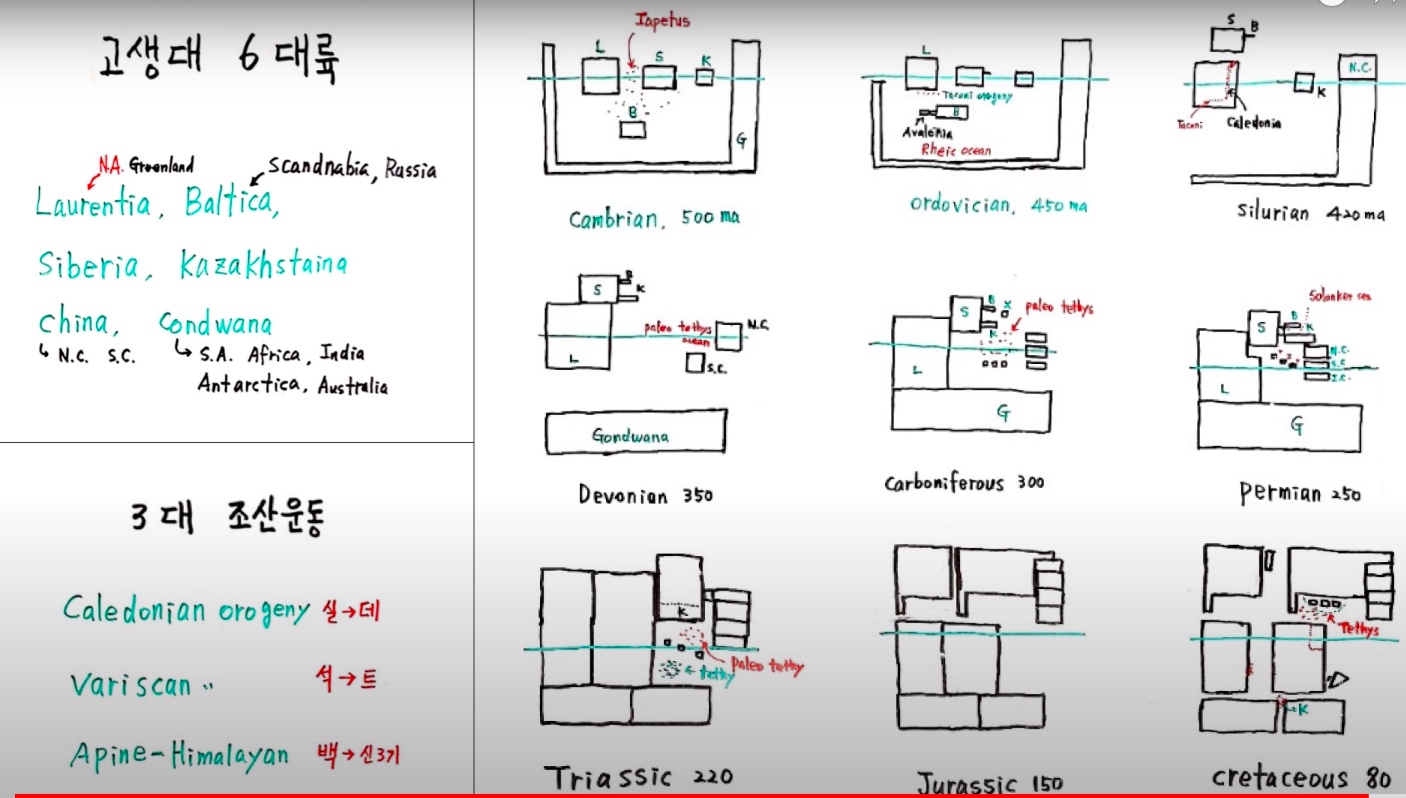 고생대 6대륙
N.A. Greenland
Scandnabia, Russia
Laurentia, Baltica,
Siberia, Kazakhstaina
China, Gondwana
N.C. S.C.
S.A. Africa, India
Antarctica, Australia
3대 조산운동
Caledonian orogeny 실→데
Variscan 〃 석→트
Apine-Himalayan 백→신3기
Iapetus
L
S
K
B
G
Cambrian, 500 ma
L
Taconi orogeny
B
Avalonia
Rheic ocean
Ordovician, 450 ma
S
B
N.C.
K
Taconi
Caledonia
Silurian 420 ma
B
S
K
paleo tethys
ocean
N.C.
L
S.C.
Gondwana
Devonian 350
S
B
K
K
paleo tethys
L
G
Carboniferous 300
Solonker sea
B
S
K
N.C.
S.C.
I.C.
L
G
Permian 250
K
Paleo tethy
tethy
Triassic 220
Jurassic 150
Tethys
K
Cretaceous 80